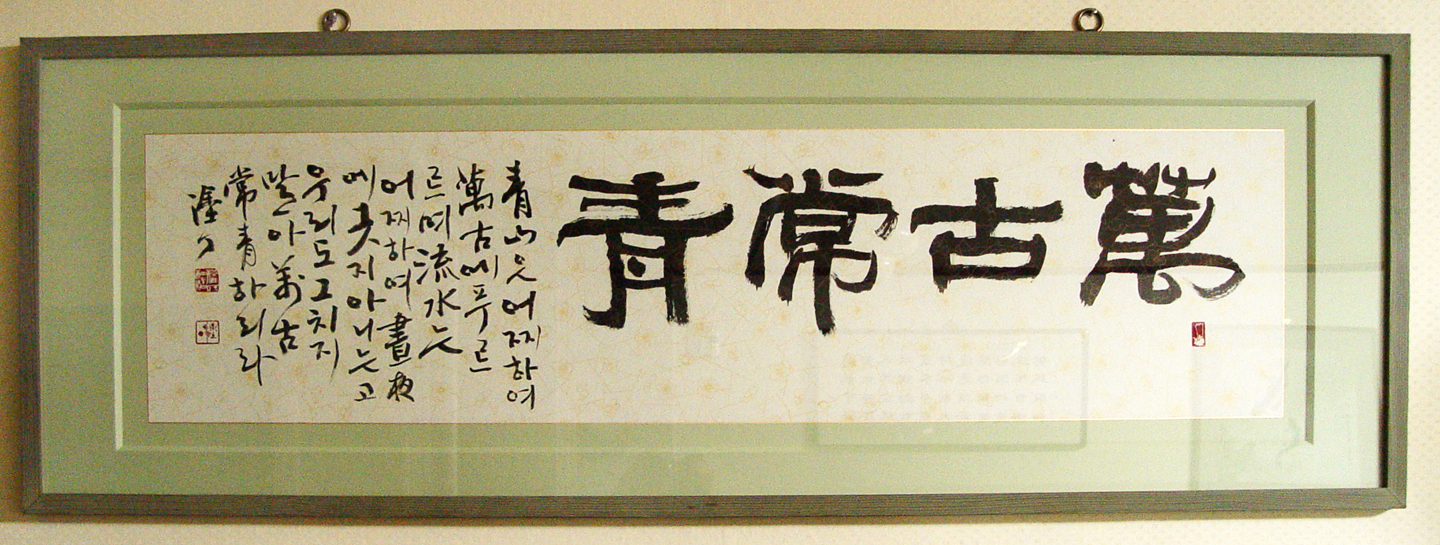 萬古常青
青山은어찌하여
萬古에푸르
르며流水는
어찌하여晝夜
에긋지아니는고
우리도그치지
말아萬古
常青하리라